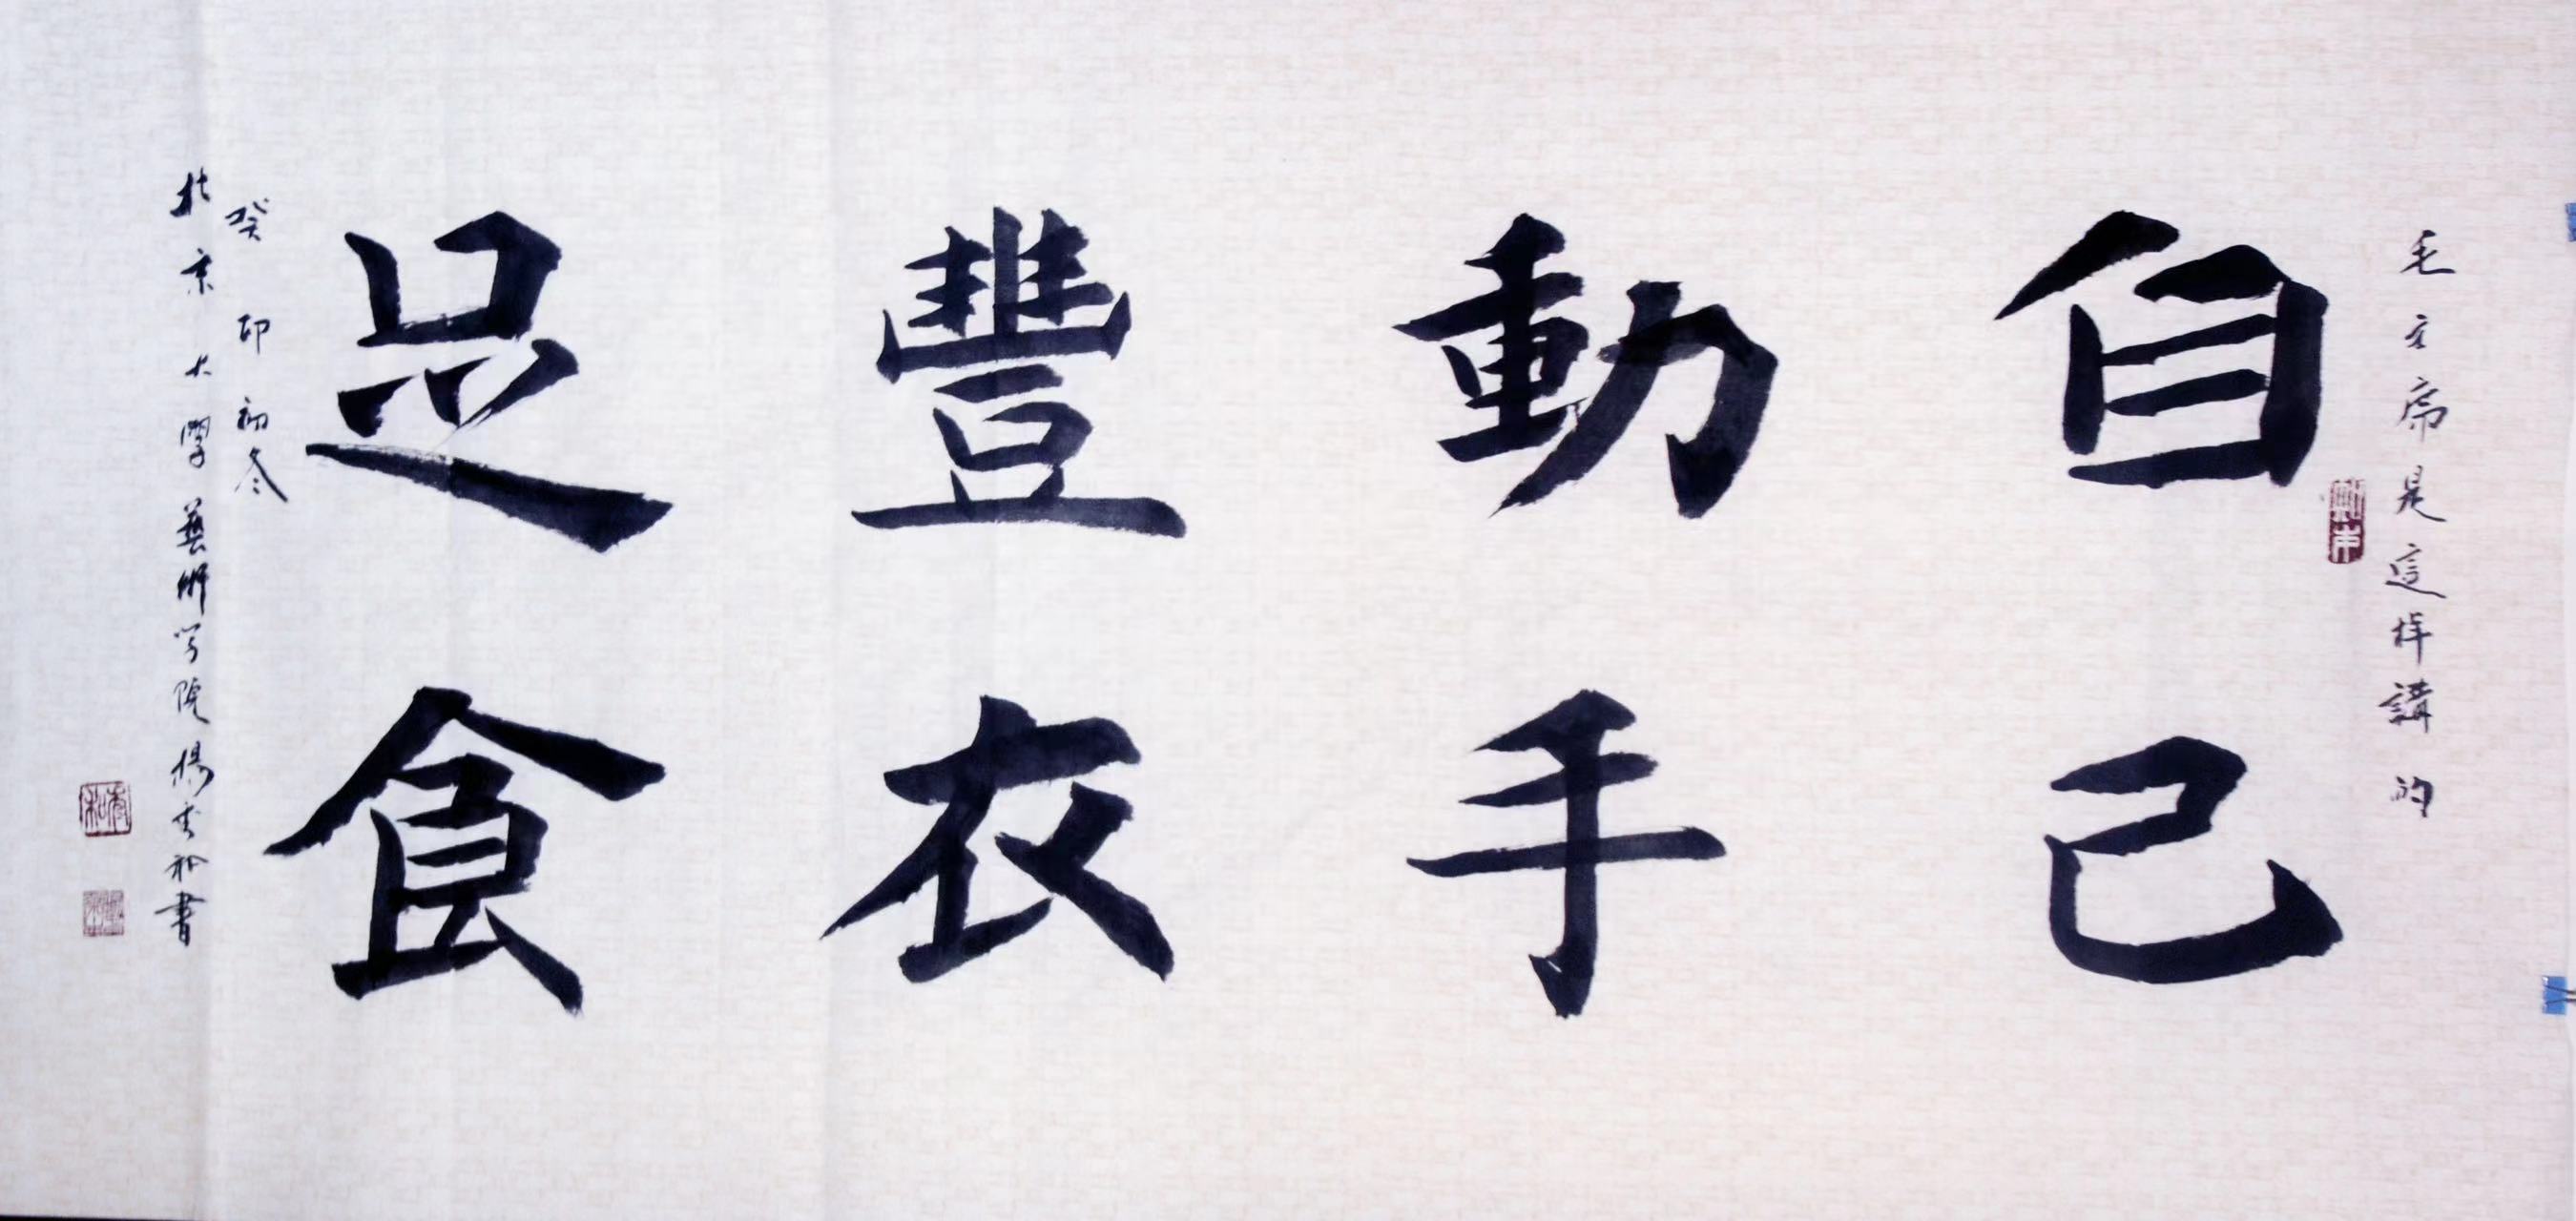 毛主席是這樣講的
自己
動手
豐衣
足食
癸卯初冬
於京大學藝術學院楊秀和書